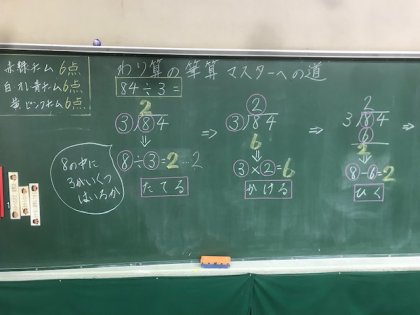 赤緑チーム 6点
白オレ青チーム 6点
黄ピンクチーム 6点
わり算の筆算 マスターへの道
84÷3=
2
3)84
8÷3=2…2
たてる
8の中に
3がいくつ
はいるか
⇒
2
3)84
6
3×2=6
かける
⇒
2
3)84
6
2
8-6=2
ひく
⇒